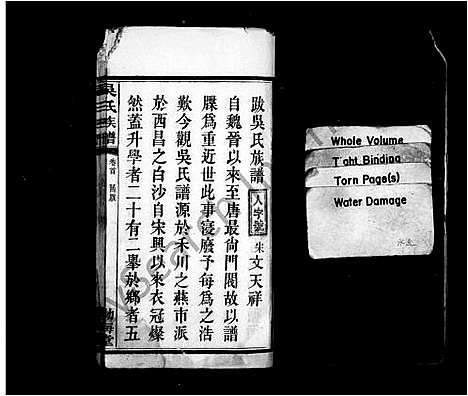 跋吳氏族譜 人字號 朱文天祥
自魏晉以來至唐最尙門閥故以譜
牒為重近世此事寖廢予每為之浩
歎今觀吳氏譜源於禾川之燕市派
於西昌之白沙自宋興以來衣冠燦
然蓋升學者二十有二舉於鄉者五
吳氏族譜
卷首
Whole Volume
Tight Binding
Torn Page(s)
Water Damage